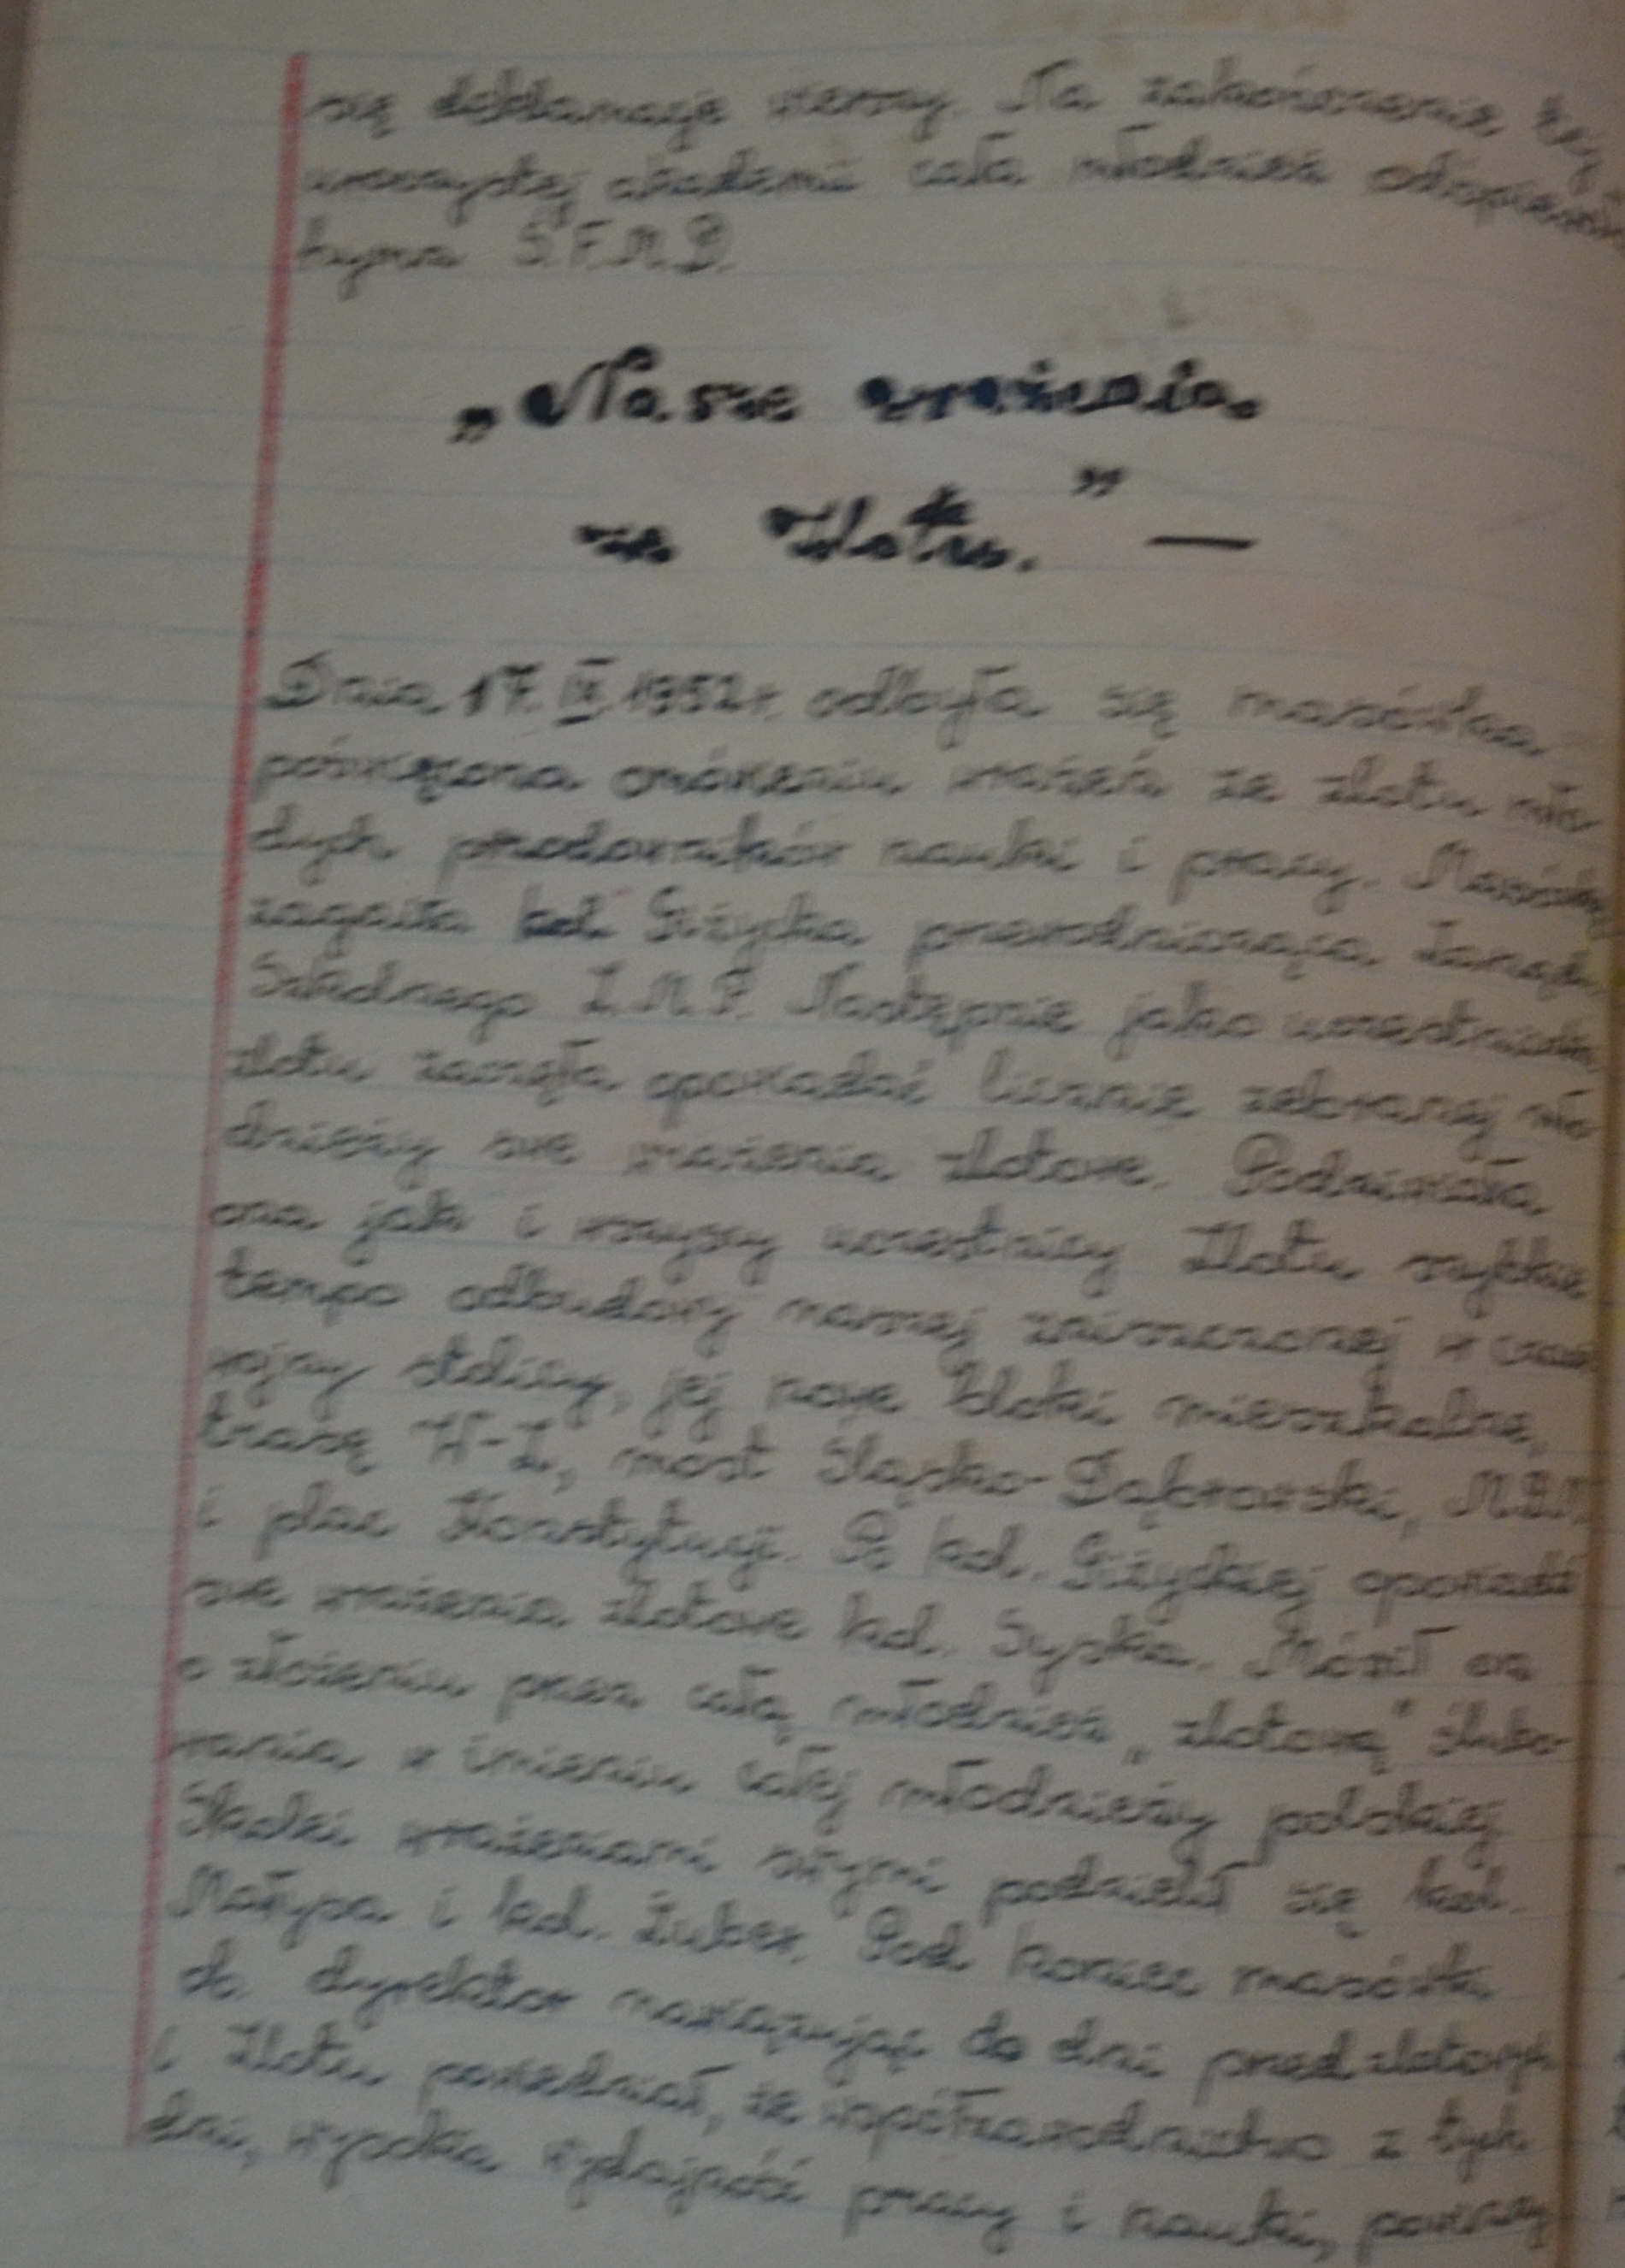 się deklamacje wierszy. Na zakończenie tej
uroczystej akademii cała młodzież odśpiewała
hymn Ś.F.M.D.
„Nasze wrażenia
ze Zlotu.” —
Dnia 17.IX.1952r. odbyła się masówka
poświęcona omówieniu wrażeń ze zlotu mło
dych przodowników nauki i pracy. Masówkę
zagaiła kol. Giżycka przewodnicząca Zarządu
Szkolnego Z.M.P. Następnie jako uczestniczka
zlotu zaczęła opowiadać licznie zebranej mło
dzieży swe wrażenia zlotowe. Podziwiała
ona jak i wszyscy uczestnicy Zlotu szybkie
tempo odbudowy naszej zniszczonej w czasie
wojny stolicy, jej nowe bloki mieszkalne,
trasę W-Z, most Śląsko-Dąbrowski, M.D.M.
i plac Konstytucji. Po kol. Giżyckiej opowiadał
swe wrażenia zlotowe kol. Sypka. Mówił on
o złożeniu przez całą młodzież „zlotową” ślubo-
wania w imieniu całej młodzieży polskiej
wrażeniami swymi podzielił się kol.
i kol. Żuber. Pod koniec masówki
ob. dyrektor nawiązując do dni przedzlotowych
i Zlotu powiedział, że współzawodnictwo z tych
dni, wysoka wydajność pracy i nauki,